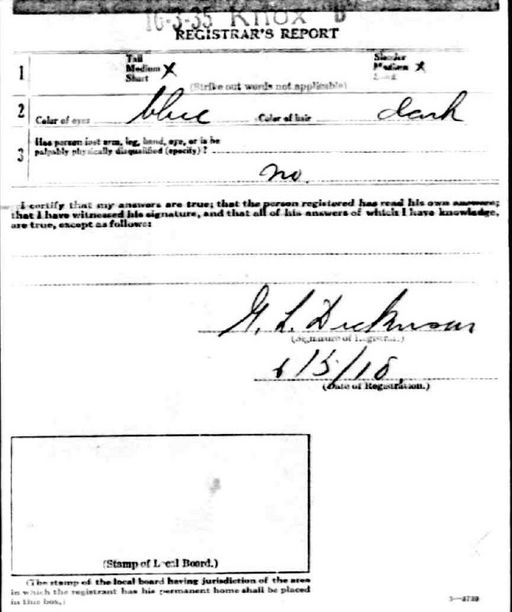 16-3-35 Knox B
REGISTRAR'S REPORT
1 Tall Medium X Short Slender Medium X
(Strike out words not applicable)
2 Color of eyes blue Color of hair dark
3 Has person lost arm, leg, hand, eye, or is he
palpably physically disqualified (specify)?
no.
I certify that my answers are true; that the person registered has read his own answers;
that I have witnessed his signature, and that all of his answers of which I have knowledge,
are true, except as follows:
G. L. Dickinson
(Signature of Registrar.)
6/5/18.
(Date of Registration.)
(Stamp of Local Board.)
(The stamp of the local board having jurisdiction of the area
in which the registrant has his permanent home shall be placed
in this box.)